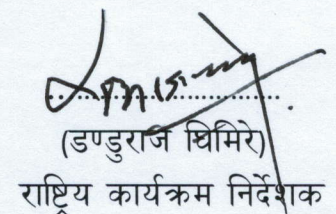 (डण्डुराज घिमिरे)
राष्ट्रिय कार्यक्रम निर्देशक